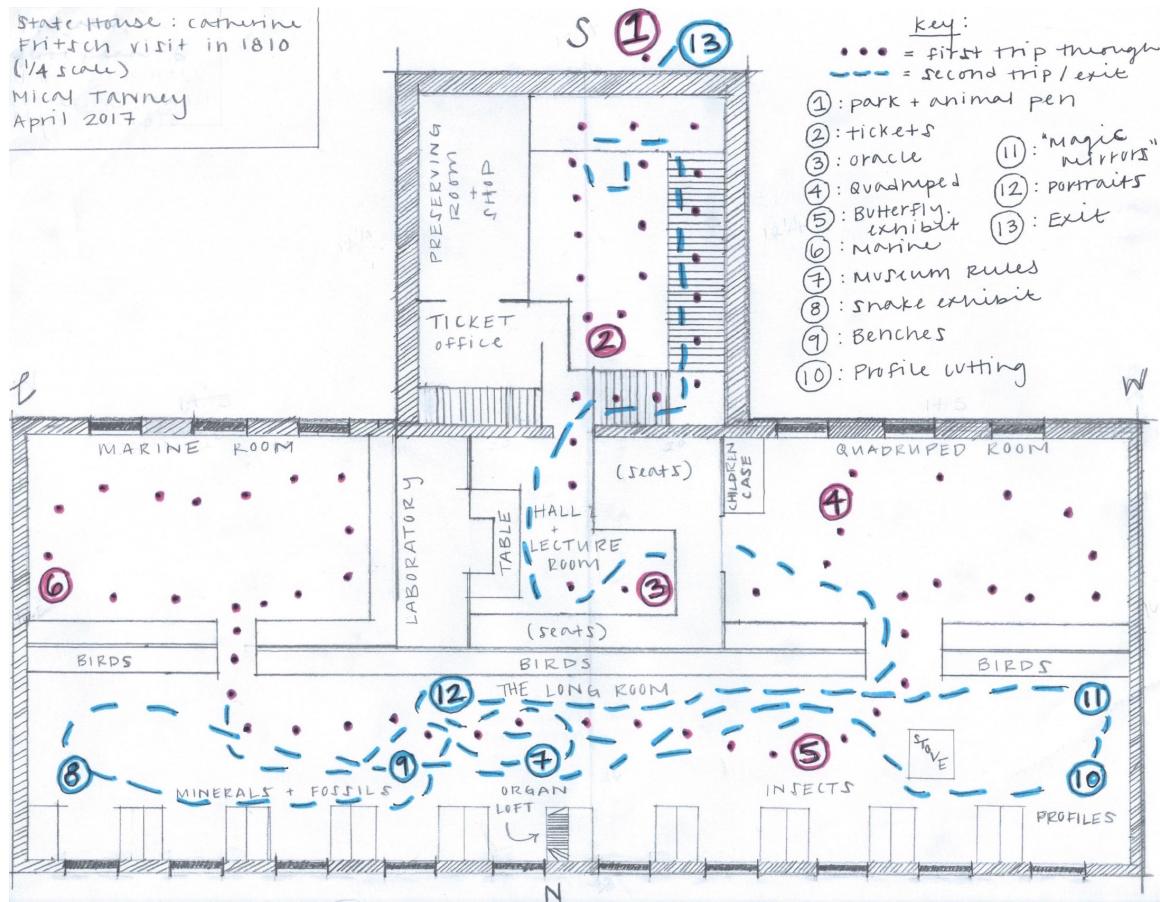 State House: Catherine
Fritsch visit in 1810
(1/4 scale)
Mical Tawney
April 2017
S
1
13
Key:
= first trip through
= second trip/exit
1: park + animal pen
2: tickets
3: oracle
4: Quadruped
5: Butterfly exhibit
6: Marine
7: Museum Rules
8: Snake exhibit
9: Benches
10: Profile cutting
11: "Magic Mirrors"
12: portraits
13: Exit
PRESERVING
ROOM
+
SHOP
TICKET
OFFICE
2
E
W
MARINE ROOM
6
LABORATORY
TABLE
HALL
+
LECTURE
ROOM
(seats)
3
(seats)
CHILDREN
CASE
QUADRUPED ROOM
4
BIRDS
BIRDS
BIRDS
THE LONG ROOM
12
11
8
9
7
5
STOVE
10
MINERALS + FOSSILS
ORGAN
LOFT
INSECTS
PROFILES
N